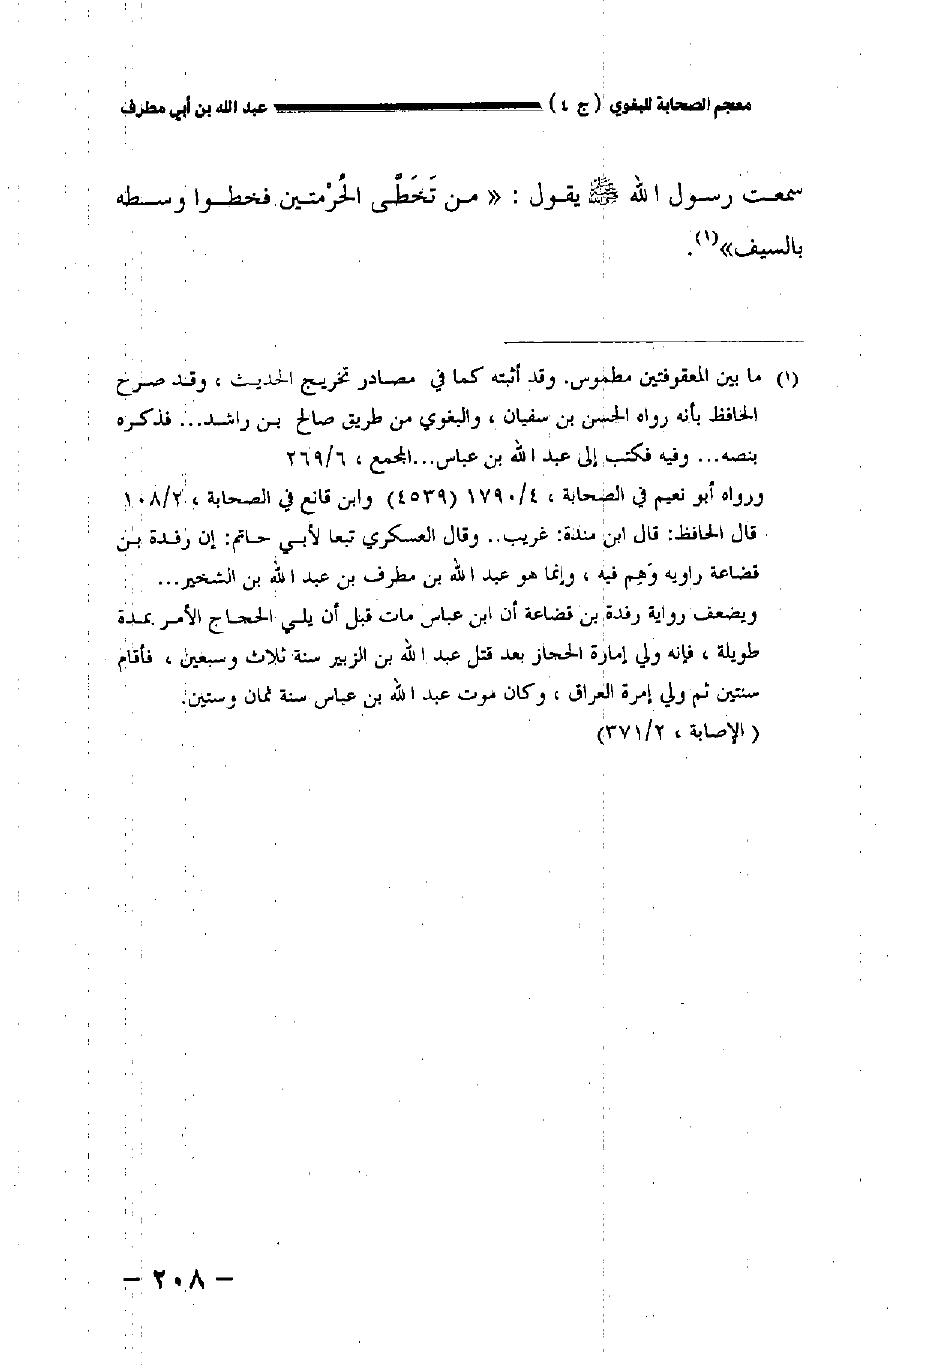 معجم الصحابة للبغوي (ج ٤) عبد الله بن أبي مطرف
سمعت رسول الله ﷺ يقول : « من تَخَطَّى الحُرْمتين فخطوا وسطه
بالسيف»(١).
(١) ما بين المعقوفتين مطموس. وقد أثبته كما في مصادر تخريج الحديث ، وقد صرح
الحافظ بأنه رواه الحسن بن سفيان ، والبغوي من طريق صالح بن راشد... فذكره
بنصه... وفيه فكتب إلى عبد الله بن عباس...المجمع ، ٢٦٩/٦
ورواه أبو نعيم في الصحابة ، ١٧٩٠/٤ (٤٥٣٩) وابن قانع في الصحابة ، ١٠٨/٢
قال الحافظ: قال ابن مندة: غريب.. وقال العسكري تبعا لأبي حاتم: إن رفدة بن
قضاعة راويه وَهِم فيه ، وإنما هو عبد الله بن مطرف بن عبد الله بن الشخير...
ويضعف رواية رفدة بن قضاعة أن ابن عباس مات قبل أن يلي الحجاج الأمر بمدة
طويلة ، فإنه ولي إمارة الحجاز بعد قتل عبد الله بن الزبير سنة ثلاث وسبعين ، فأقام
سنتين ثم ولي إمرة العراق ، وكان موت عبد الله بن عباس سنة ثمان وستين.
( الإصابة ، ٣٧١/٢)
– ٢٠٨ –